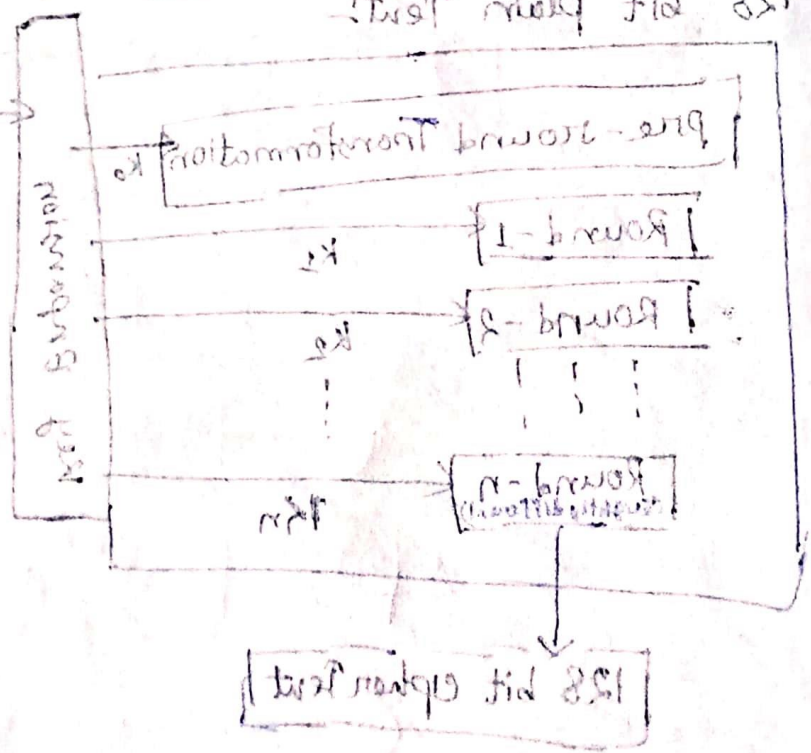 128 bit plain Text:-
pre-round Transformation
K₀
Round-1
K₁
Round-2
K₂
Round-n
(slightly different)
Kn
Key Expansion
128 bit cipher Text